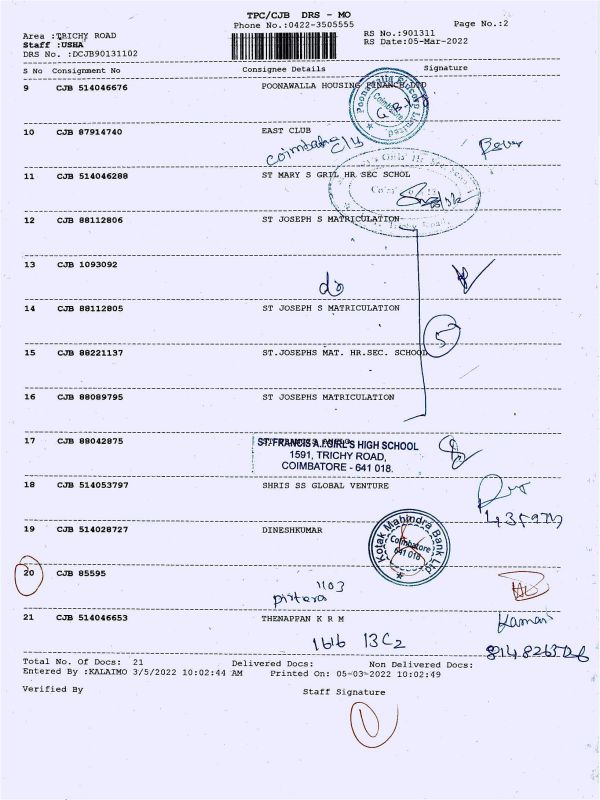 TPC/CJB DRS - MO
Phone No.:0422-3505555
Page No.:2
Area :TRICHY ROAD
RS No.:901311
Staff :USHA
RS Date:05-Mar-2022
DRS No. :DCJB90131102
S No Consignment No Consignee Details Signature
9 CJB 514046676 POONAWALLA HOUSING FINANCE LTD
10 CJB 87914740 EAST CLUB
11 CJB 514046288 ST MARY S GRIL HR SEC SCHOL
12 CJB 88112806 ST JOSEPH S MATRICULATION
13 CJB 1093092
do
14 CJB 88112805 ST JOSEPH S MATRICULATION
5
15 CJB 88221137 ST.JOSEPHS MAT. HR.SEC. SCHOOL
16 CJB 88089795 ST JOSEPHS MATRICULATION
17 CJB 88042875 ST.FRANCIS A.I.GIRL'S HIGH SCHOOL
1591, TRICHY ROAD,
COIMBATORE - 641 018.
18 CJB 514053797 SHRIS SS GLOBAL VENTURE
19 CJB 514028727 DINESHKUMAR
Kotak Mahindra Bank Ltd
Coimbatore
641 018
20 CJB 85595
1103
21 CJB 514046653 THENAPPAN K R M
1616 13C2
Total No. Of Docs: 21 Delivered Docs: Non Delivered Docs:
Entered By :KALAIMO 3/5/2022 10:02:44 AM Printed On: 05-03-2022 10:02:49
Verified By Staff Signature